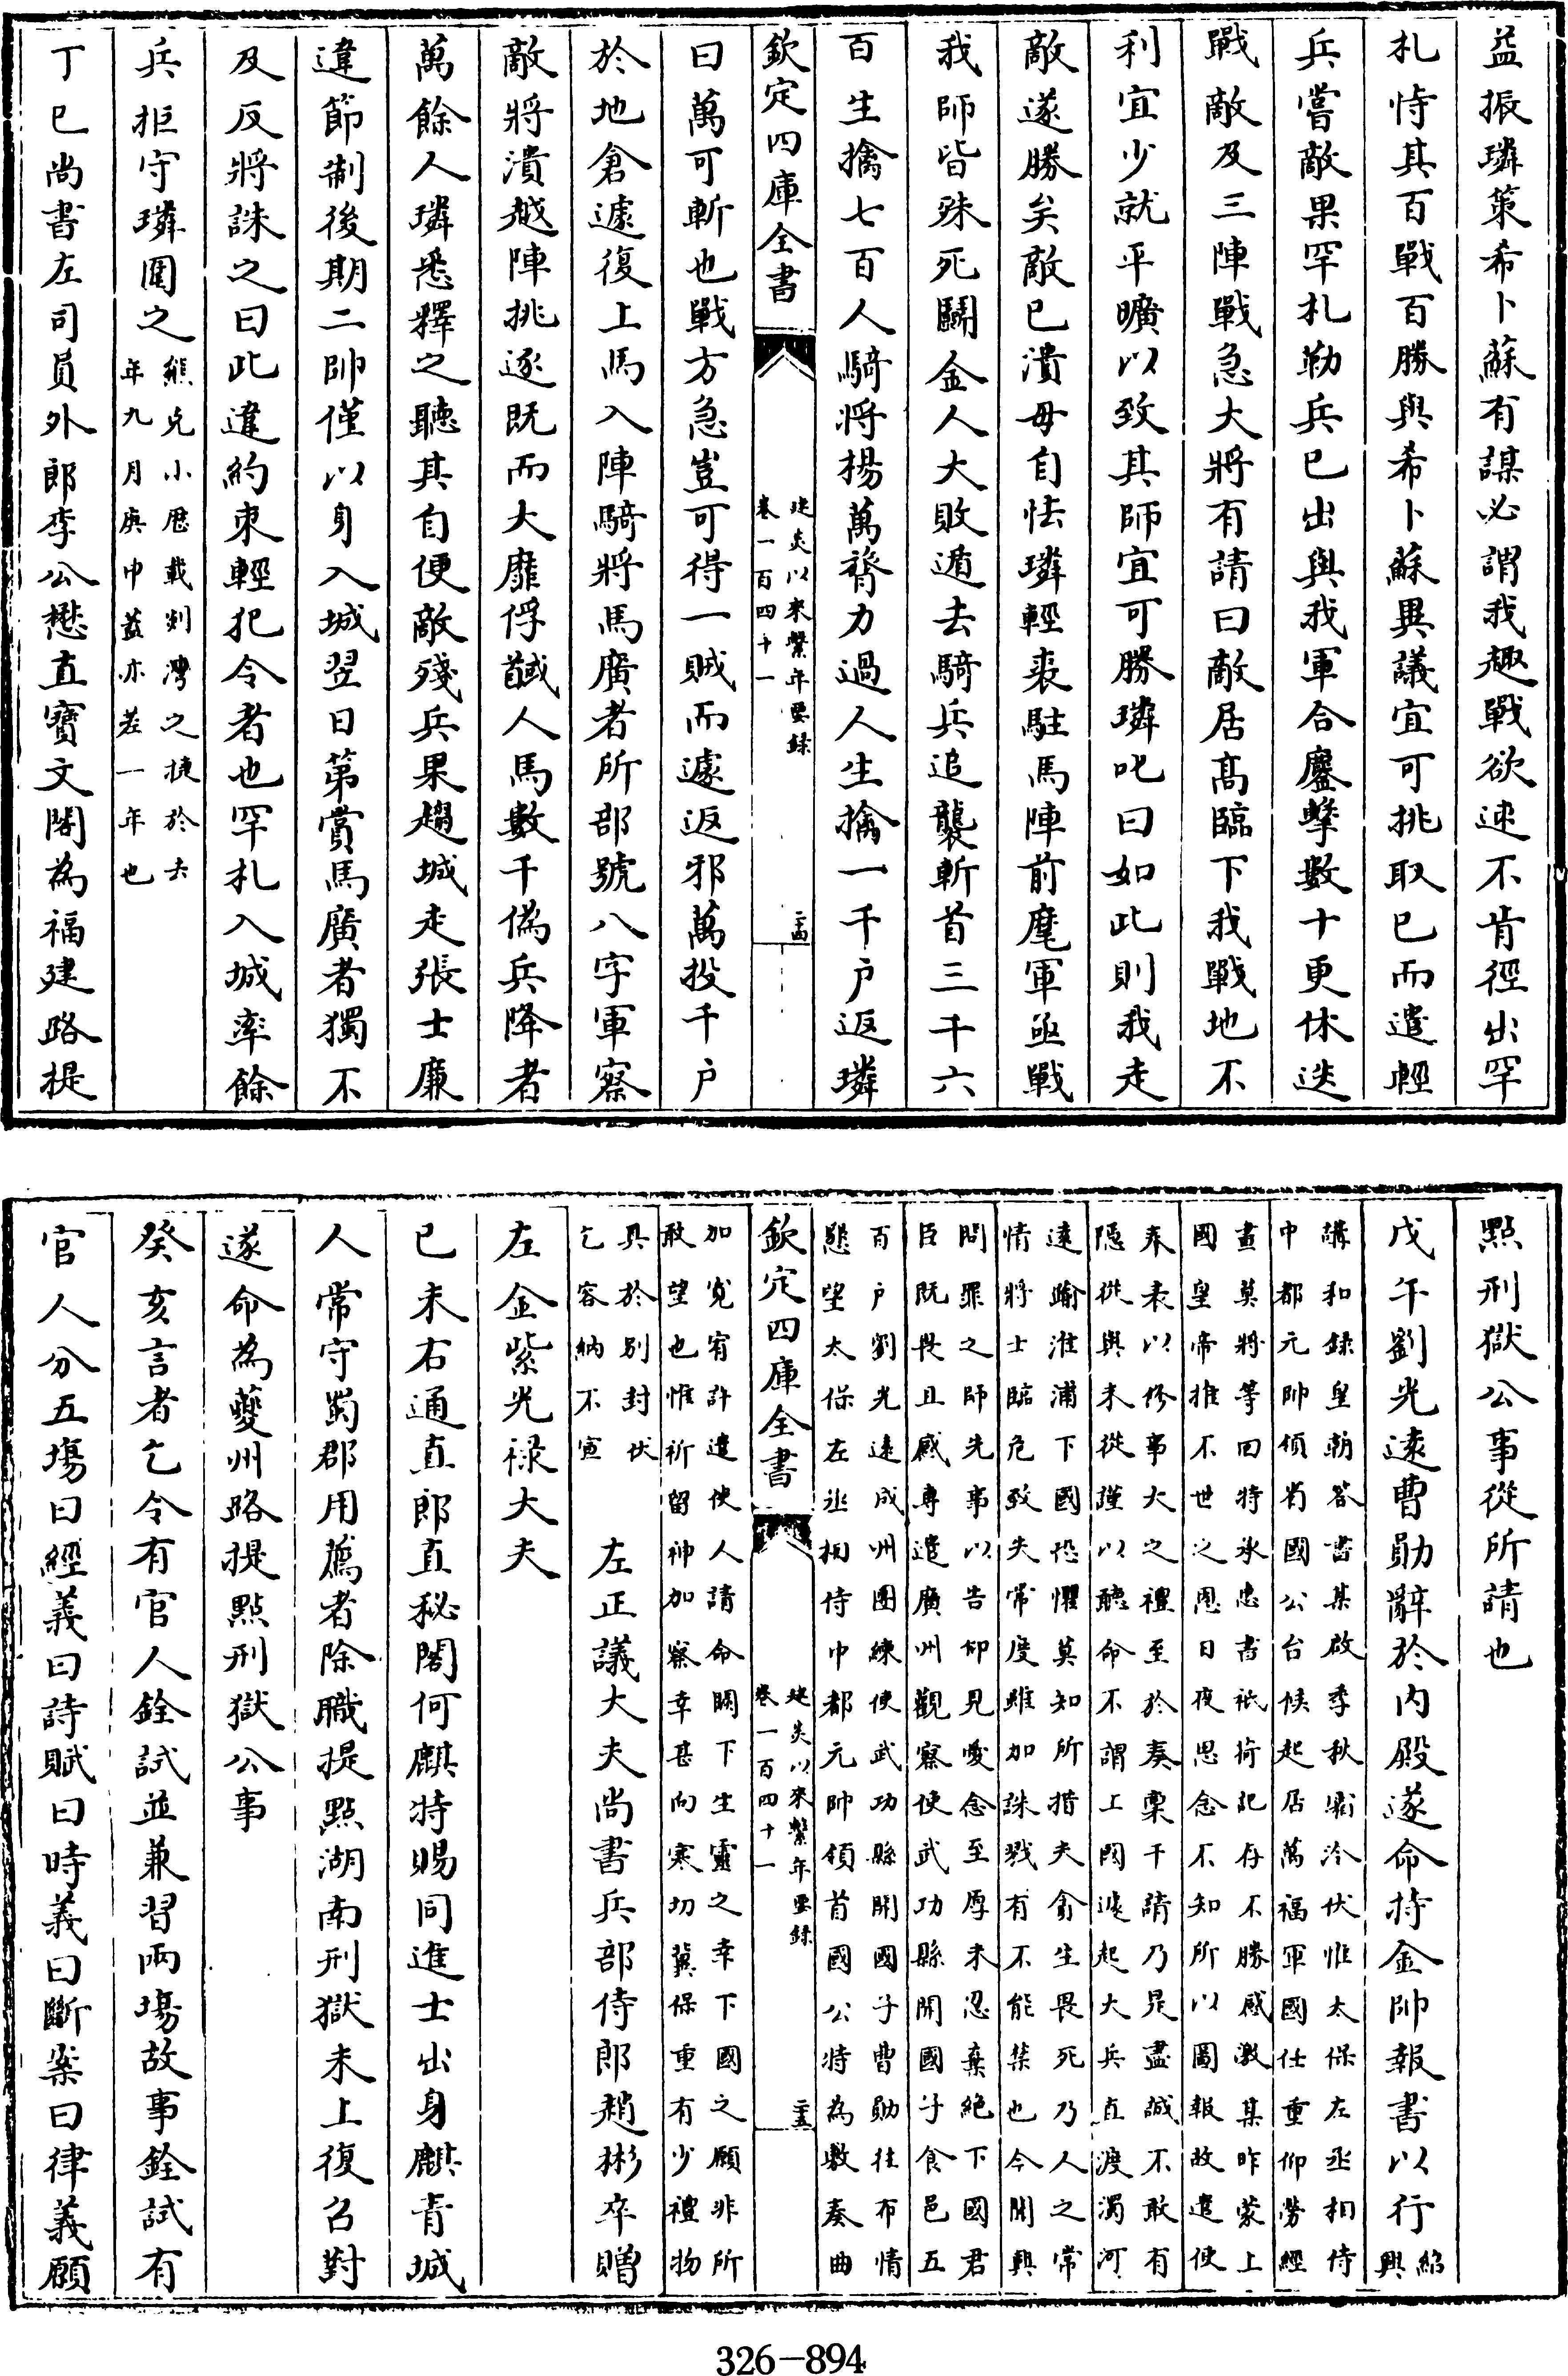 益振璘策希卜蘇有謀必謂我趣戰欲速不肯徑出罕
札恃其百戰百勝與希卜蘇異議宜可挑取已而遣輕
兵嘗敵果罕札勒兵已出與我軍合鏖擊數十更休迭
戰敵及三陣戰急大將有請曰敵居高臨下我戰地不
利宜少就平曠以致其師宜可勝璘叱曰如此則我走
敵遂勝矣敵已潰毋自怯璘輕裘駐馬陣前麾軍亟戰
我師皆殊死鬭金人大敗遁去騎兵追襲斬首三千六
百生擒七百人騎將楊萬膂力過人生擒一千戶返璘
欽定四庫全書
建炎以來繫年要錄
卷一百四十一
二十四
曰萬可斬也戰方急豈可得一賊而遽返邪萬投千戶
於地倉遽復上馬入陣騎將馬廣者所部號八字軍察
敵將潰越陣挑逐既而大靡俘馘人馬數千偽兵降者
萬餘人璘悉釋之聽其自便敵殘兵果趨城走張士廉
違節制後期二帥僅以身入城翌日第賞馬廣者獨不
及反將誅之曰此違約束輕犯令者也罕札入城率餘
兵拒守璘圍之
熊克小歴載剡灣之捷於去
年九月庚申蓋亦差一年也
丁巳尚書左司員外郎李公懋直寶文閣為福建路提
點刑獄公事從所請也
戊午劉光遠曹勛辭於内殿遂命持金帥報書以行
紹
興
講和錄皇朝答書某啟季秋霜冷伏惟太保左丞相侍
中都元帥領省國公台候起居萬福軍國任重仰勞經
畫莫將等回特承惠書祇荷記存不勝感激某昨蒙上
國皇帝推不世之恩日夜思念不知所以圖報故遣使
奉表以修事大之禮至於奏稟干請乃是盡誠不敢有
隱從與未從謹以聽命不謂上國遽起大兵直渡濁河
遠踰淮浦下國恐懼莫知所措夫貪生畏死乃人之常
情將士臨危致失常度雖加誅戮有不能禁也今聞興
問罪之師先事以告仰見愛念至厚未忍棄絶下國君
臣既畏且感專遣廣州觀察使武功縣開國子食邑五
百戶劉光遠成州團練使武功縣開國子曹勛往布情
懇望太保左丞相侍中都元帥領首國公特為敷奏曲
欽定四庫全書
建炎以來繫年要錄
卷一百四十一
二十五
加寛宥許遣使人請命闕下生靈之幸下國之願非所
敢望也惟祈留神加察幸甚向寒切冀保重有少禮物
具於别封伏
乞容納不宣
左正議大夫尚書兵部侍郎趙彬卒贈
左金紫光禄大夫
己未右通直郎直秘閣何麒特賜同進士出身麒青城
人常守蜀郡用薦者除職提點湖南刑獄未上復召對
遂命為夔州路提點刑獄公事
癸亥言者乞令有官人銓試並兼習兩場故事銓試有
官人分五場曰經義曰詩賦曰時義曰斷案曰律義願
326-894